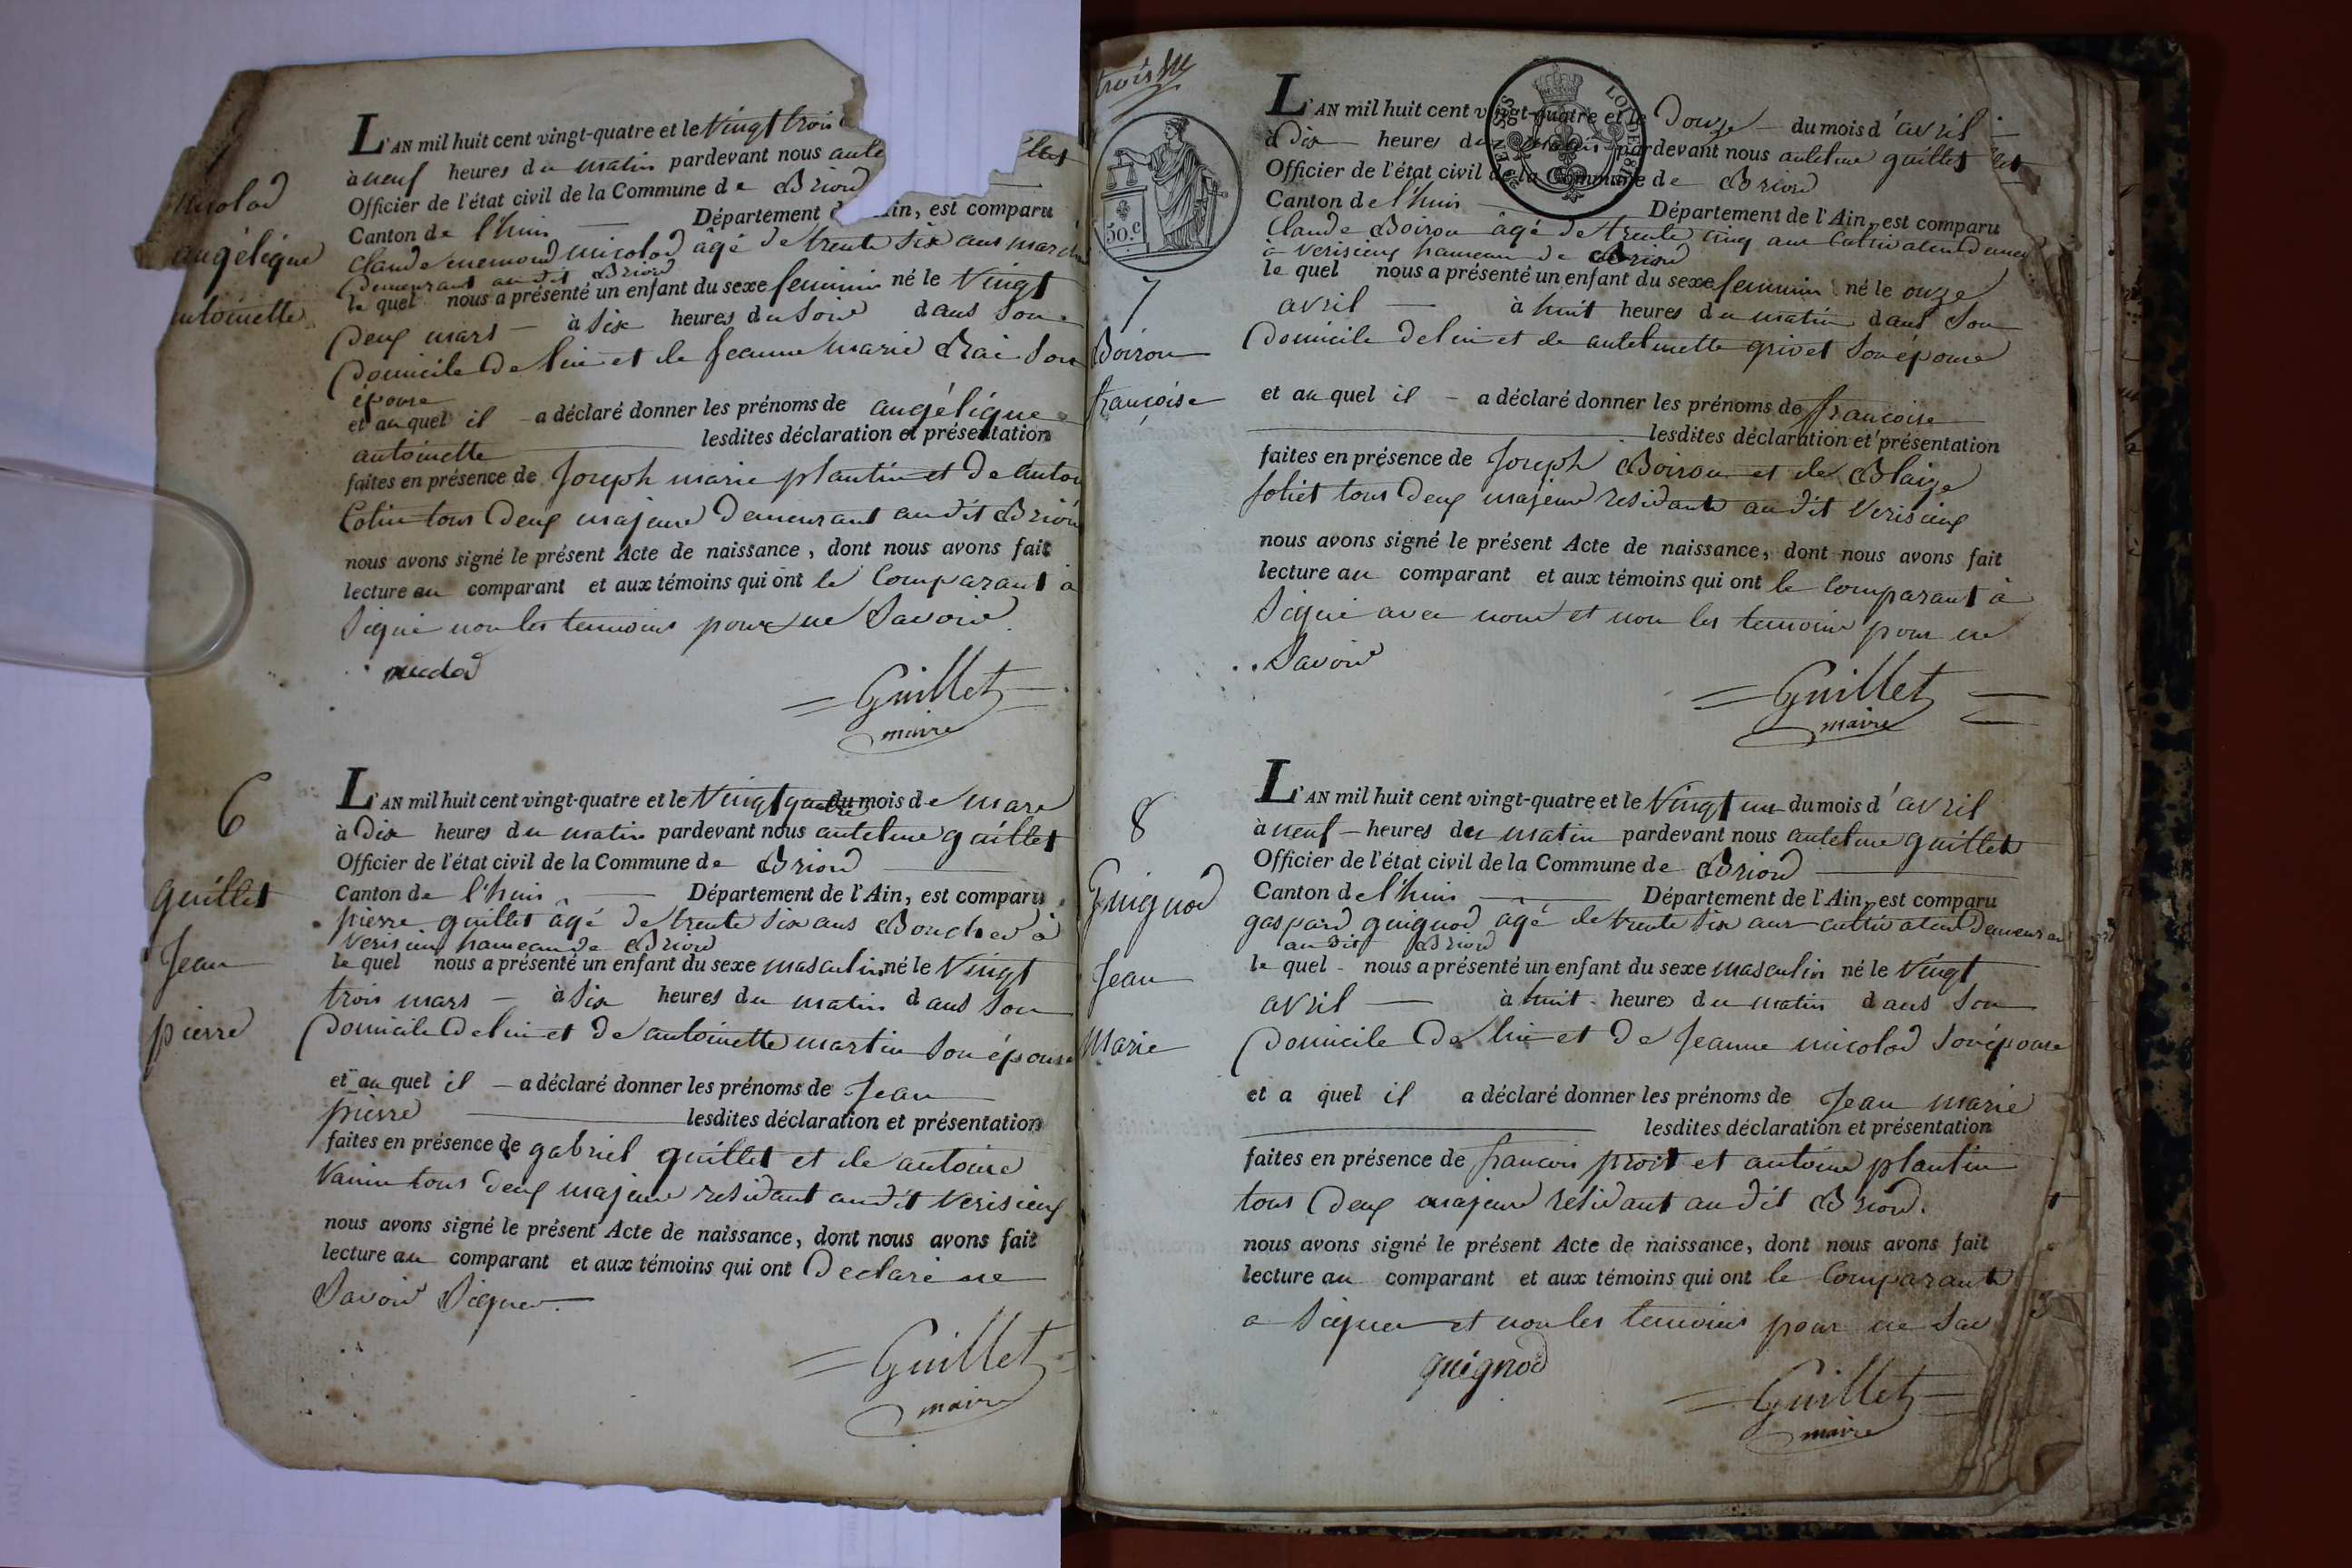 nicolod
angélique
antoinette
L'AN mil huit cent vingt-quatre et le Vingt trois
à neuf heures du matin pardevant nous ante
Officier de l'état civil de la Commune de Briord
Canton de l'huis Département ain, est comparu
Claude nicolod âgé de trente six ans
Demeurant au dit Briord
le quel nous a présenté un enfant du sexe feminin né le Vingt
Deux mars à Six heures du Soir dans Son
Domicile De lui et de Jeanne marie Rai Son
épouse
et au quel il a déclaré donner les prénoms de angélique
antoinette lesdites déclaration et présentation
faites en présence de Joseph marie plantin et De antoi
Colin tous Deux majeurs Demeurant au dit Briord
nous avons signé le présent Acte de naissance, dont nous avons fait
lecture au comparant et aux témoins qui ont le Comparant à
Signé non les temoins pour ne Savoir
Guillet
maire
6
guillet
Jean
pierre
L'AN mil huit cent vingt-quatre et le Vingt quatre du mois de mars
à Dix heures du matin pardevant nous antelme guillet
Officier de l'état civil de la Commune de Briord
Canton de l'huis Département de l'Ain, est comparu
pierre guillet âgé de trente Six ans Boucher à
Verisieux hameau de Briord
le quel nous a présenté un enfant du sexe masculin né le Vingt
trois mars à Six heures du matin dans Son
Domicile De lui et De antoinette martin Son épouse
et au quel il a déclaré donner les prénoms de Jean
pierre lesdites déclaration et présentation
faites en présence de gabriel guillet et de antoine
tous Deux majeurs residant au dit Verisieux
nous avons signé le présent Acte de naissance, dont nous avons fait
lecture au comparant et aux témoins qui ont Declaré ne
Savoir Signer.
Guillet
maire
trois
50.c
7
Boiron
françoise
L'AN mil huit cent vingt-quatre et le Douze du mois d'avril
à Dix heures du matin pardevant nous antelme guillet
Officier de l'état civil de la Commune de Briord
Canton de l'huis Département de l'Ain, est comparu
Claude Boiron âgé de trente cinq ans Cultivateur Demeu
à Verisieux hameau de Briord
le quel nous a présenté un enfant du sexe feminin né le onze
avril à huit heures du matin dans Son
Domicile De lui et de antelmette grivet Son épouse
et au quel il a déclaré donner les prénoms de françoise
lesdites déclaration et présentation
faites en présence de Joseph Boiron et de Blaize
foliet tous Deux majeurs residants au dit Verisieux
nous avons signé le présent Acte de naissance, dont nous avons fait
lecture au comparant et aux témoins qui ont le Comparant à
Signé avec nous et non les temoins pour ne
Savoir
Guillet
maire
8
Guignod
Jean
Marie
L'AN mil huit cent vingt-quatre et le Vingt un du mois d'avril
à neuf heures du matin pardevant nous antelme guillet
Officier de l'état civil de la Commune de Briord
Canton de l'huis Département de l'Ain, est comparu
gaspard guignod âgé de trente Six ans cultivateur Demeuran
au dit Briord
le quel nous a présenté un enfant du sexe masculin né le Vingt
avril à huit heures du matin dans Son
Domicile De lui et De Jeanne nicolod Son épouse
et a quel il a déclaré donner les prénoms de Jean marie
lesdites déclaration et présentation
faites en présence de francois proit et antoine plantin
tous Deux majeurs residant au dit Briord.
nous avons signé le présent Acte de naissance, dont nous avons fait
lecture au comparant et aux témoins qui ont le Comparant
a Signer et non les temoins pour ne Sav
guignod
Guillet
maire